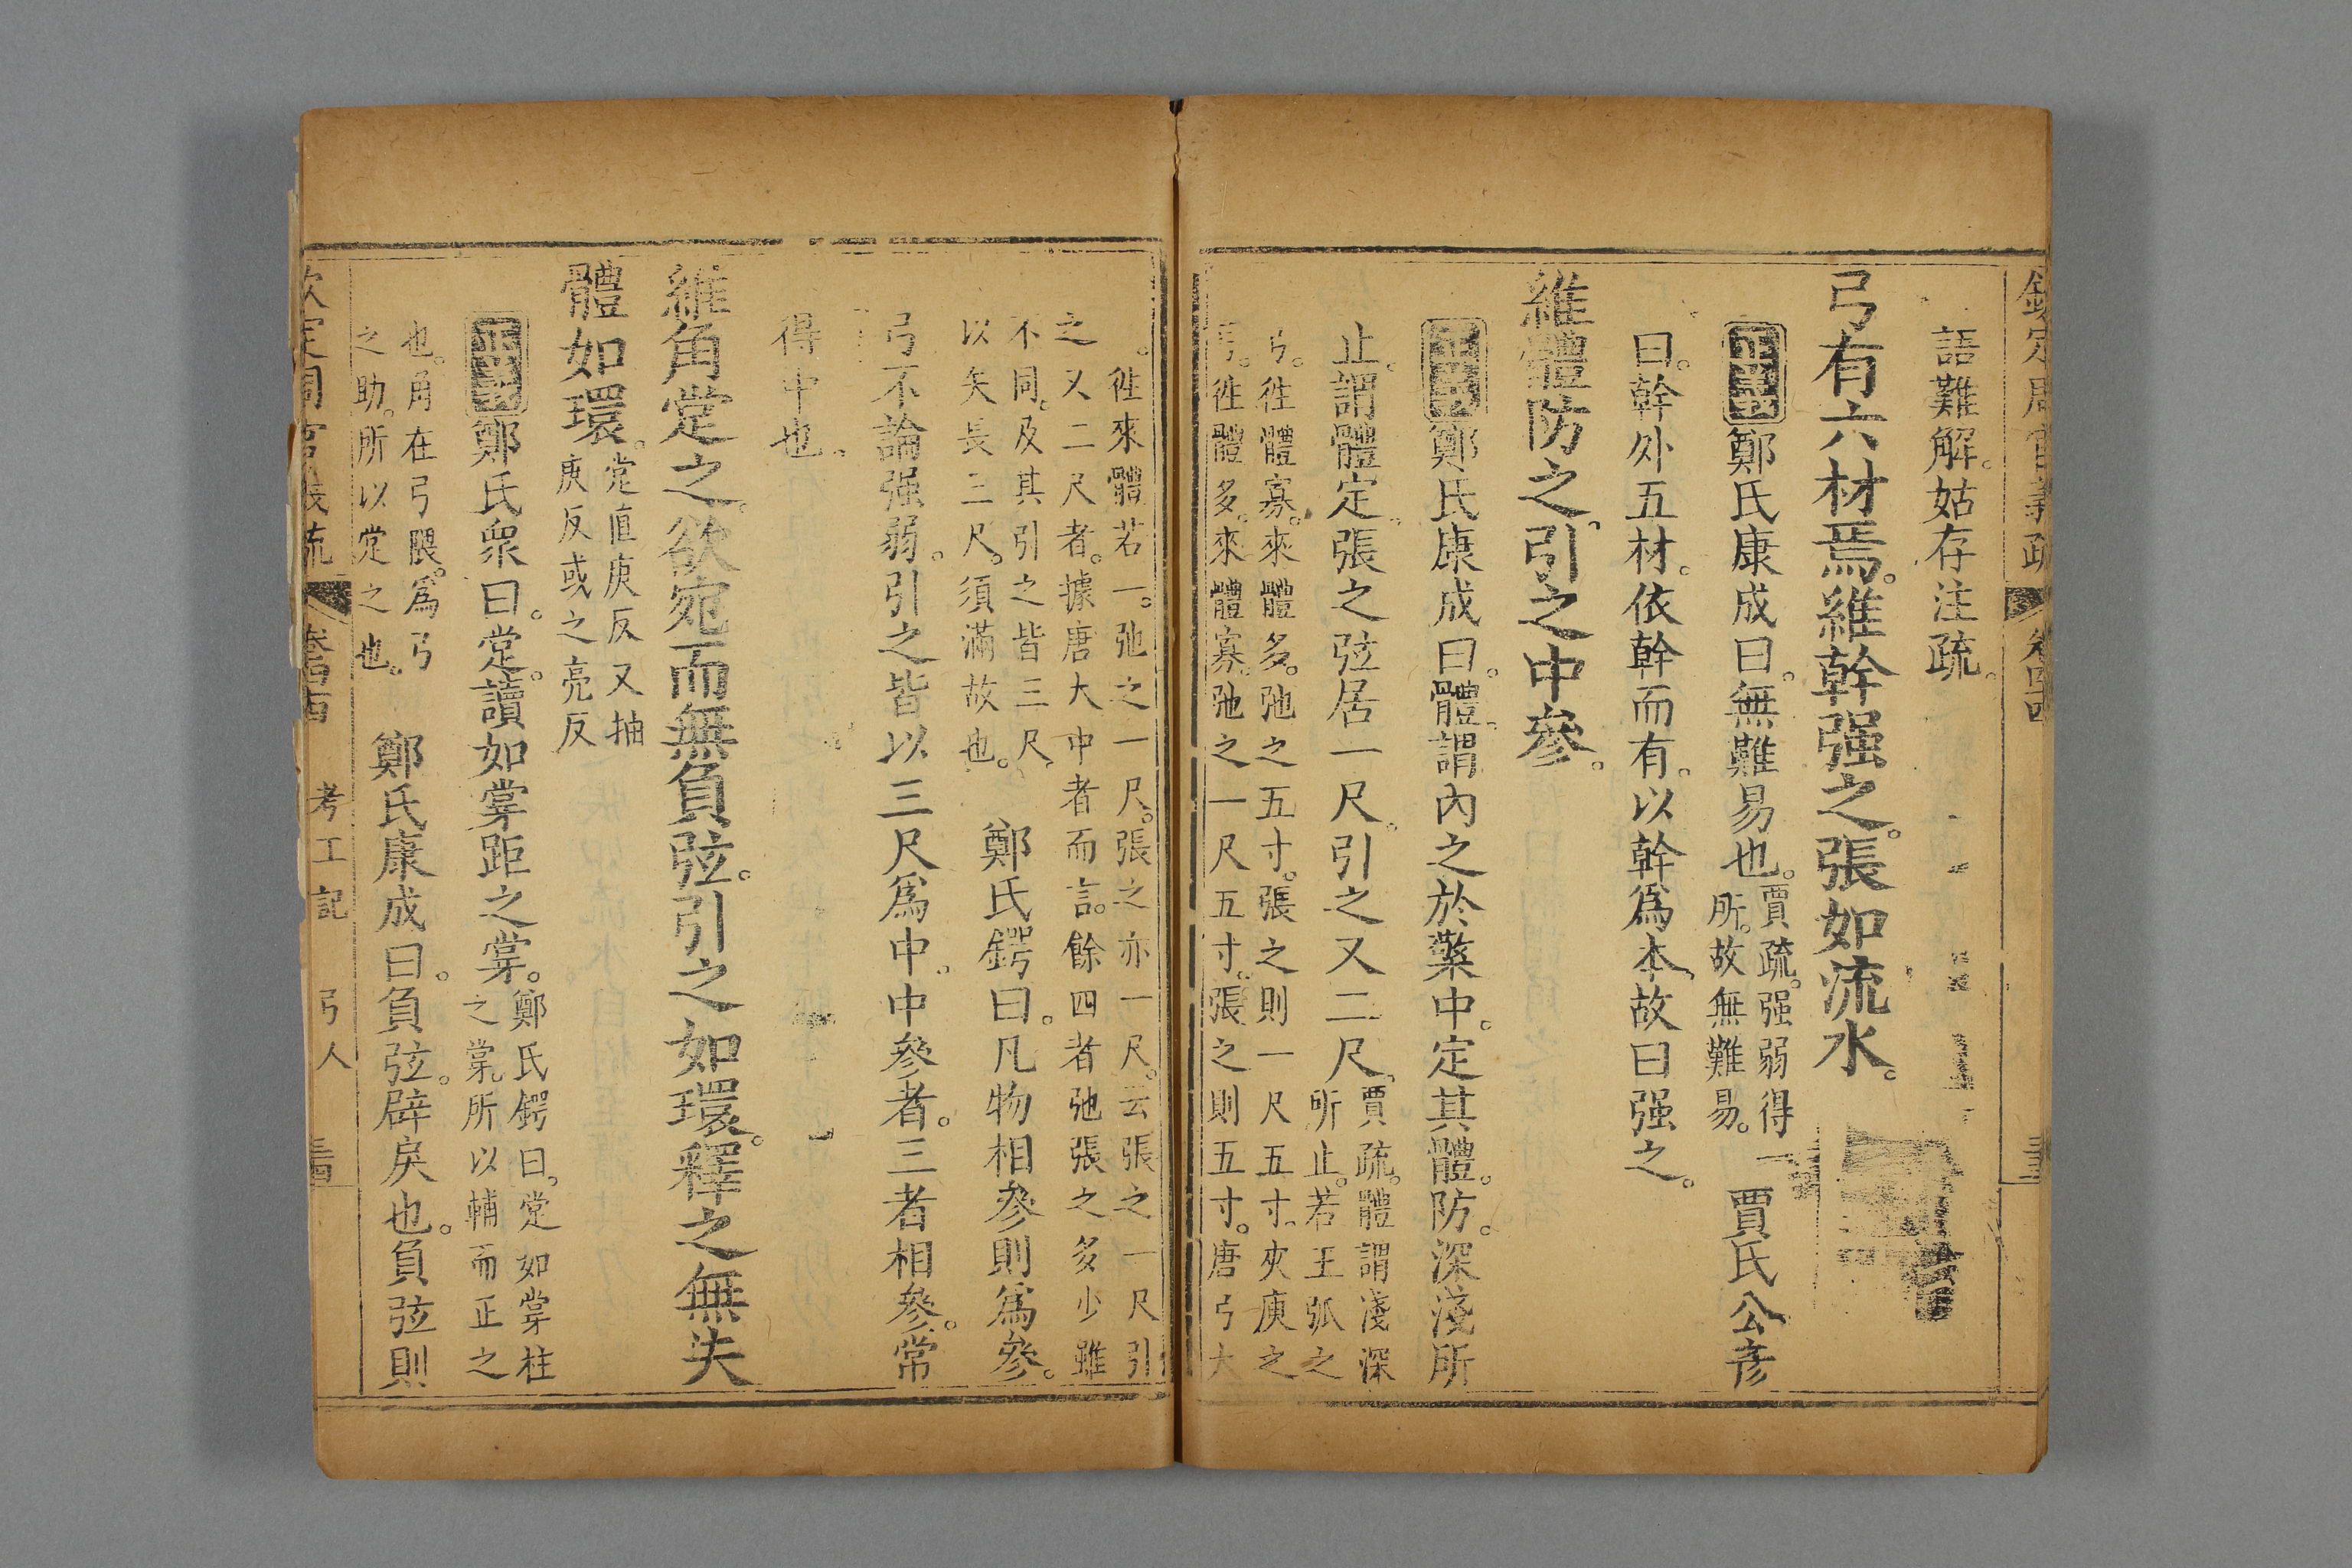 欽定周官義疏 卷四十四
語難解。姑存注疏。
弓有六材焉。維幹强之。張如流水。
正義 鄭氏康成曰。無難易也。賈疏。强弱得
所。故無難易。 賈氏公彥
曰。幹外五材。依幹而有。以幹爲本。故曰强之。
維體防之。引之中參。
正義 鄭氏康成曰。體。謂內之於檠中。定其體。防。深淺所
止。謂體定。張之弦居一尺。引之又二尺。賈疏。體謂淺深
所止。若王弧之
弓。徃體寡。來體多。弛之五寸。張之則一尺五寸。夾庾之
弓。徃體多。來體寡。弛之一尺五寸。張之則五寸。唐弓大
。徃來體若一。弛之一尺。張之亦一尺。云張之一尺引
之又二尺者。據唐大中者而言。餘四者弛張之多少雖
不同。及其引之皆三尺。
以矢長三尺。須滿故也。 鄭氏鍔曰。凡物相參則爲參。
弓不論强弱。引之皆以三尺爲中。中參者。三者相參。常
得中也。
維角㲉之。欲宛而無負弦。引之如環。釋之無失
體如環。㲉直庚反又抽
庚反或之亮反
正義 鄭氏衆曰。㲉。讀如掌距之掌。鄭氏鍔曰。㲉如掌柱
之掌。所以輔而正之
也。角在弓隈。爲弓
之助。所以㲉之也。 鄭氏康成曰。負弦。辟戾也。負弦則
欽定周官義疏 卷四十四 考工記 弓人